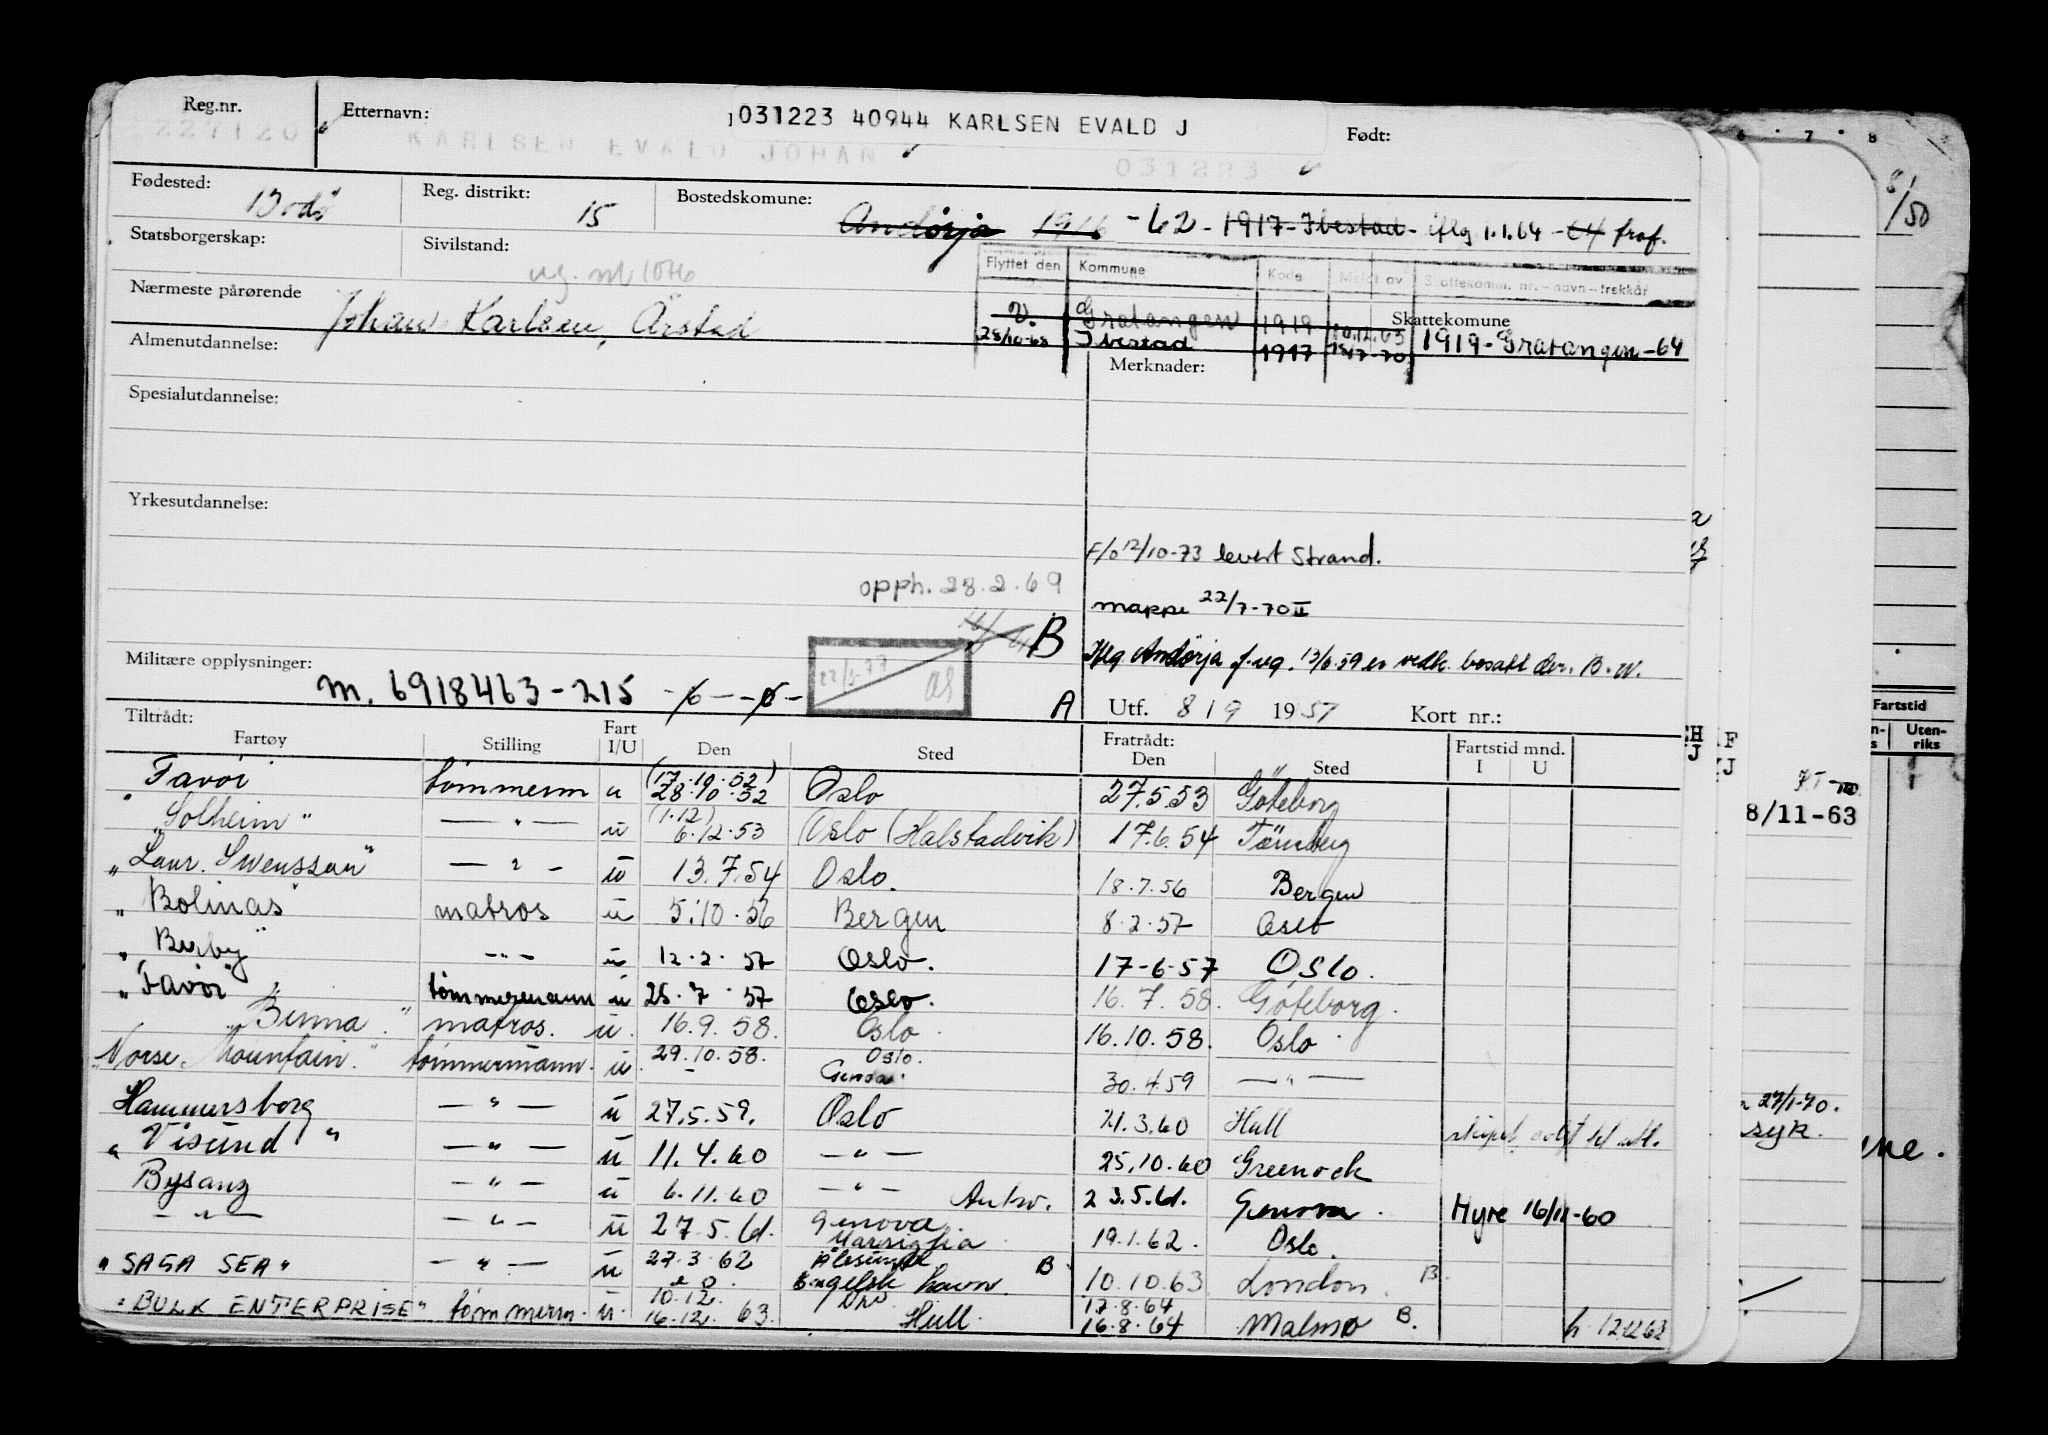 Reg.nr. Etternavn: 031223 40944 KARLSEN EVALD J Født:
227120 KARLSEN EVALD JOHAN 031223
Fødested: Bodø Reg. distrikt: 15 Bostedskomune: Andørja -62- 1917-Ibestad- iflg 1.1.64 -64 fraf.
Statsborgerskap: Sivilstand:
Flyttet den Kommune Kode Meldt av Skattekomm. nr.-navn-trekkår
Nærmeste pårørende Johan Karlsen, Årstad
v. Gratangen 1919 Skattekomune
28/10-68 Ibestad 1917 1919-Gratangen-64
Almenutdannelse: Merknader:
Spesialutdannelse:
Yrkesutdannelse:
F/o 12/10-73 levert Strand.
opph. 28.2.69
mappe 22/7-70 II
B
Iflg Andørja f.reg. 13/6.59 er vedk. bosatt der. B.N.
Militære opplysninger: m. 6918463-215 -6--6-
22/3-77
A Utf. 8/9 1957 Kort nr.:
Tiltrådt: Fratrådt:
Fartøy Stilling Fart I/U Den Sted Den Sted Fartstid mnd. I U
Favör tömmerm u (17.10.52) 28.10.52 Oslo 27.5.53 Göteborg
"Solheim" — " — u (1.12) 6.12.53 Oslo (Halstadvik) 17.6.54
"Laur. Swenssan" — " — u 13.7.54 Oslo. 18.7.56 Bergen
"Bolinas" matros u 5.10.56 Bergen 8.2.57 Oslo
"Burby" -"- u 12.2.57 Oslo. 17-6-57 Oslo.
"Favör" tömmermann u 25.7.57 Oslo. 16.7.58. Göteborg.
"Binna." matros. u. 16.9.58. Oslo. 16.10.58. Oslo.
"Norse Mountain." tömmermann. u. 29.10.58. Oslo. Genoa. 30.4.59 — " —
Hammersborg — " — u 27.5.59. Oslo 21.3.60 Hull
"Visund" — " — u 11.4.60 — " — 25.10.60 Greenock
Bysanz — " — u 6.11.60 — " — Antw. 23.5.61. Genova. Hyre 16/11-60
— " — — " — u 27.5.61. Genova. Marsiglia 19.1.62. Oslo.
"SAGA SEA" — " — u 27.3.62 Ålesund Engelsk havn. B. 10.10.63 London. B.
"BULK ENTERPRISE" tömmerm. u. 10.12. 16.12. 63. Hull. 17.8.64 16.8.64 Malmø B. h. 12.12.63
6 7 8
8/50
Fartstid
Uten-
riks
8/11-63
27/1-70.
syk.